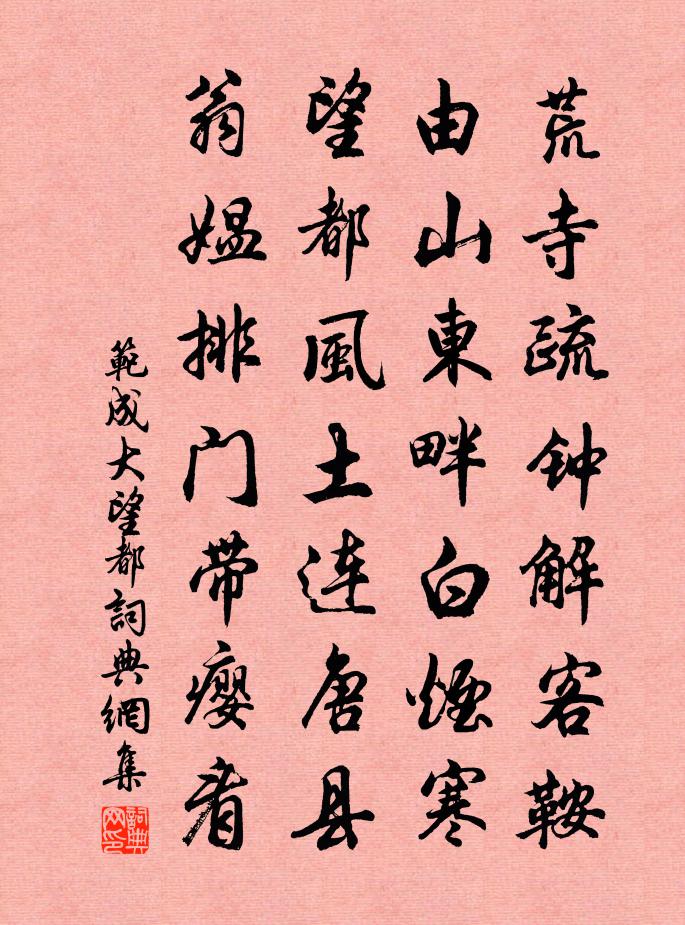 荒寺疏钟解客鞍
由山東畔白煙寒
望都風土连唐县
翁媪排门带瘿看
範成大望都詞典網集
詞典网印